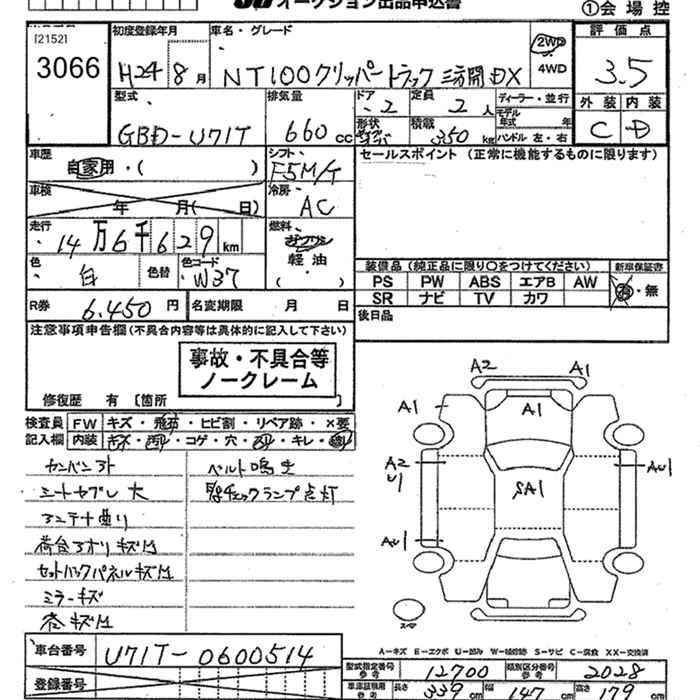 オークション出品申込書
①会場控
[2152]
3066
初度登録年月
H24年8月
車名・グレード
NT100クリッパートラック 三方開 DX
2WD
4WD
評価点
3.5
型式
GBD-U71T
排気量
660cc
ドア
2
定員
2人
形状
積載
350kg
ディーラー・並行
モデル年式 年
ハンドル 左・右
外装 内装
C D
車歴
自家用・( )
シフト
F5M/T
セールスポイント (正常に機能するものに限ります)
車検
年 月( 日)
冷房
AC
走行
14万6千629km
燃料
ガソリン
軽油
( )
色
白
色替
色コード
W37
装備品 (純正品に限り〇をつけてください)
新車保証書
PS PW ABS エアB AW
SR ナビ TV カワ
有・無
R券
6,450円
名変期限 月 日
後日品
注意事項申告欄(不具合内容等は具体的に記入して下さい)
事故・不具合等
ノークレーム
修復歴 有 [箇所 ]
検査員
記入欄
FW キズ・飛石・ヒビ割・リペア跡・×要
内装 キズ・・コゲ・穴・・キレ・
A2 A1
A1 A1
A2
U1
AU1
SA1
AU1
スペア
ベルト鳴き
シートヤブレ大
チェックランプ点灯
アンテナ曲り
荷台アオリキズM
セットバックパネルキズM
ミラーキズ
A-キズ E-エクボ U-凹み W-補修跡 S-サビ C-腐食 XX-交換済
車台番号
U71T-0600514
登録番号
型式指定番号
参考
12700
類別区分番号
参考
2028
車庫証明用
参考
長さ 339cm 幅 147cm 高さ 179cm